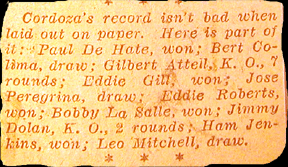 Cordoza's record isn't bad when
laid out on paper. Here is part of
it: Paul De Hate, won; Bert Co-
lima, draw; Gilbert Atteil, K. O., 7
rounds; Eddie Gill, won; Jose
Peregrina, draw; Eddie Roberts,
won; Bobby La Salle, won; Jimmy
Dolan, K. O., 2 rounds; Ham Jen-
kins, won; Leo Mitchell, draw.
* * *